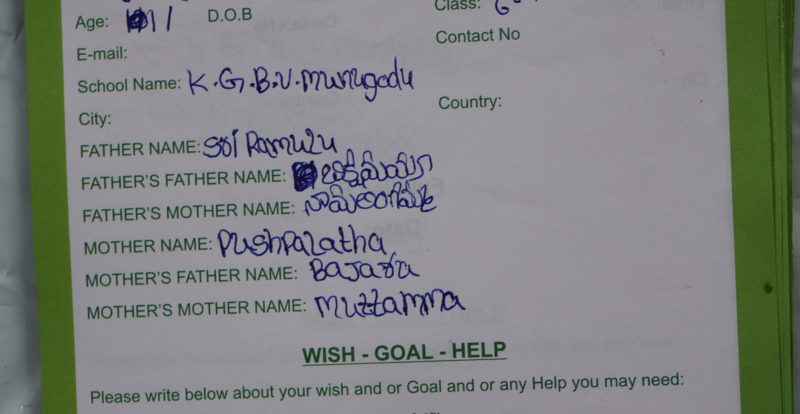 Age: 11 D.O.B Class:
E-mail: Contact No
School Name: K.G.B.V. Munugodu
City: Country:
FATHER NAME: Sri Ramulu
FATHER'S FATHER NAME:
FATHER'S MOTHER NAME:
MOTHER NAME: Pushpalatha
MOTHER'S FATHER NAME:
MOTHER'S MOTHER NAME: Muttamma
WISH - GOAL - HELP
Please write below about your wish and or Goal and or any Help you may need: